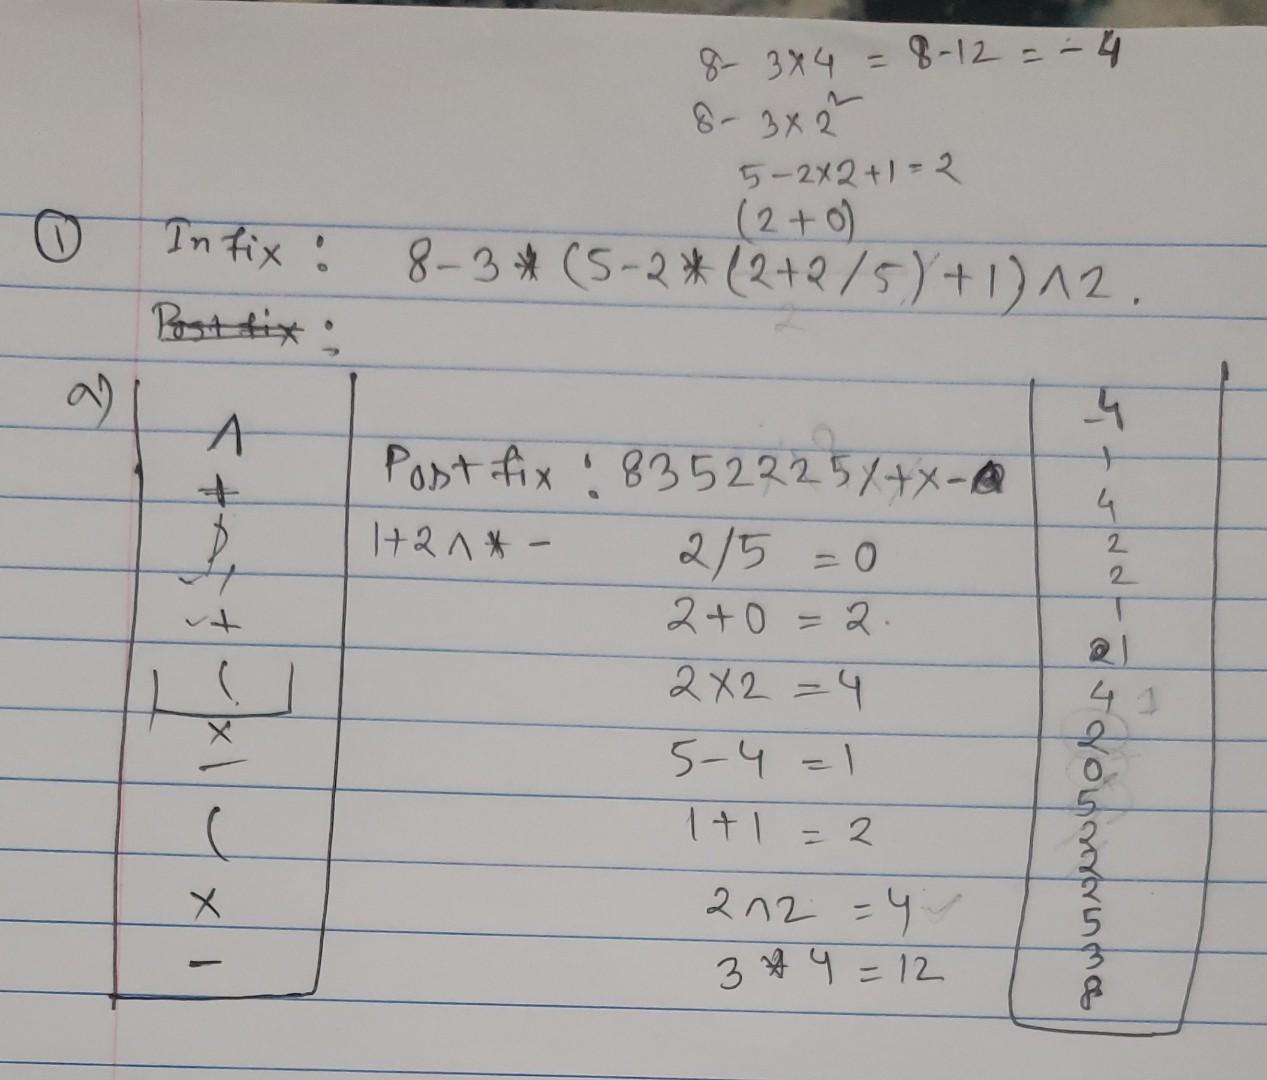 8- 3×4 = 8-12 = -4
8- 3×2²
5-2×2+1=2
(2+0)
① Infix : 8-3*(5-2*(2+2/5)+1)^2.
Postfix :
a)
^
+
)
/
+
(
×
-
(
×
-
Postfix : 8352225/+×-
1+2^*-
2/5 = 0
2+0 = 2.
2×2 = 4
5-4 = 1
1+1 = 2
2^2 = 4
3*4 = 12
-4
1
4
2
2
1
1
4
2
0
5
2
2
2
5
3
8